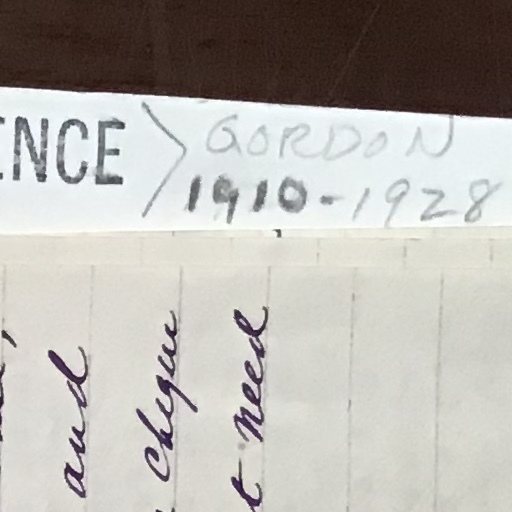 and
cheque
t need
ENCE > GORDON
1910-1928